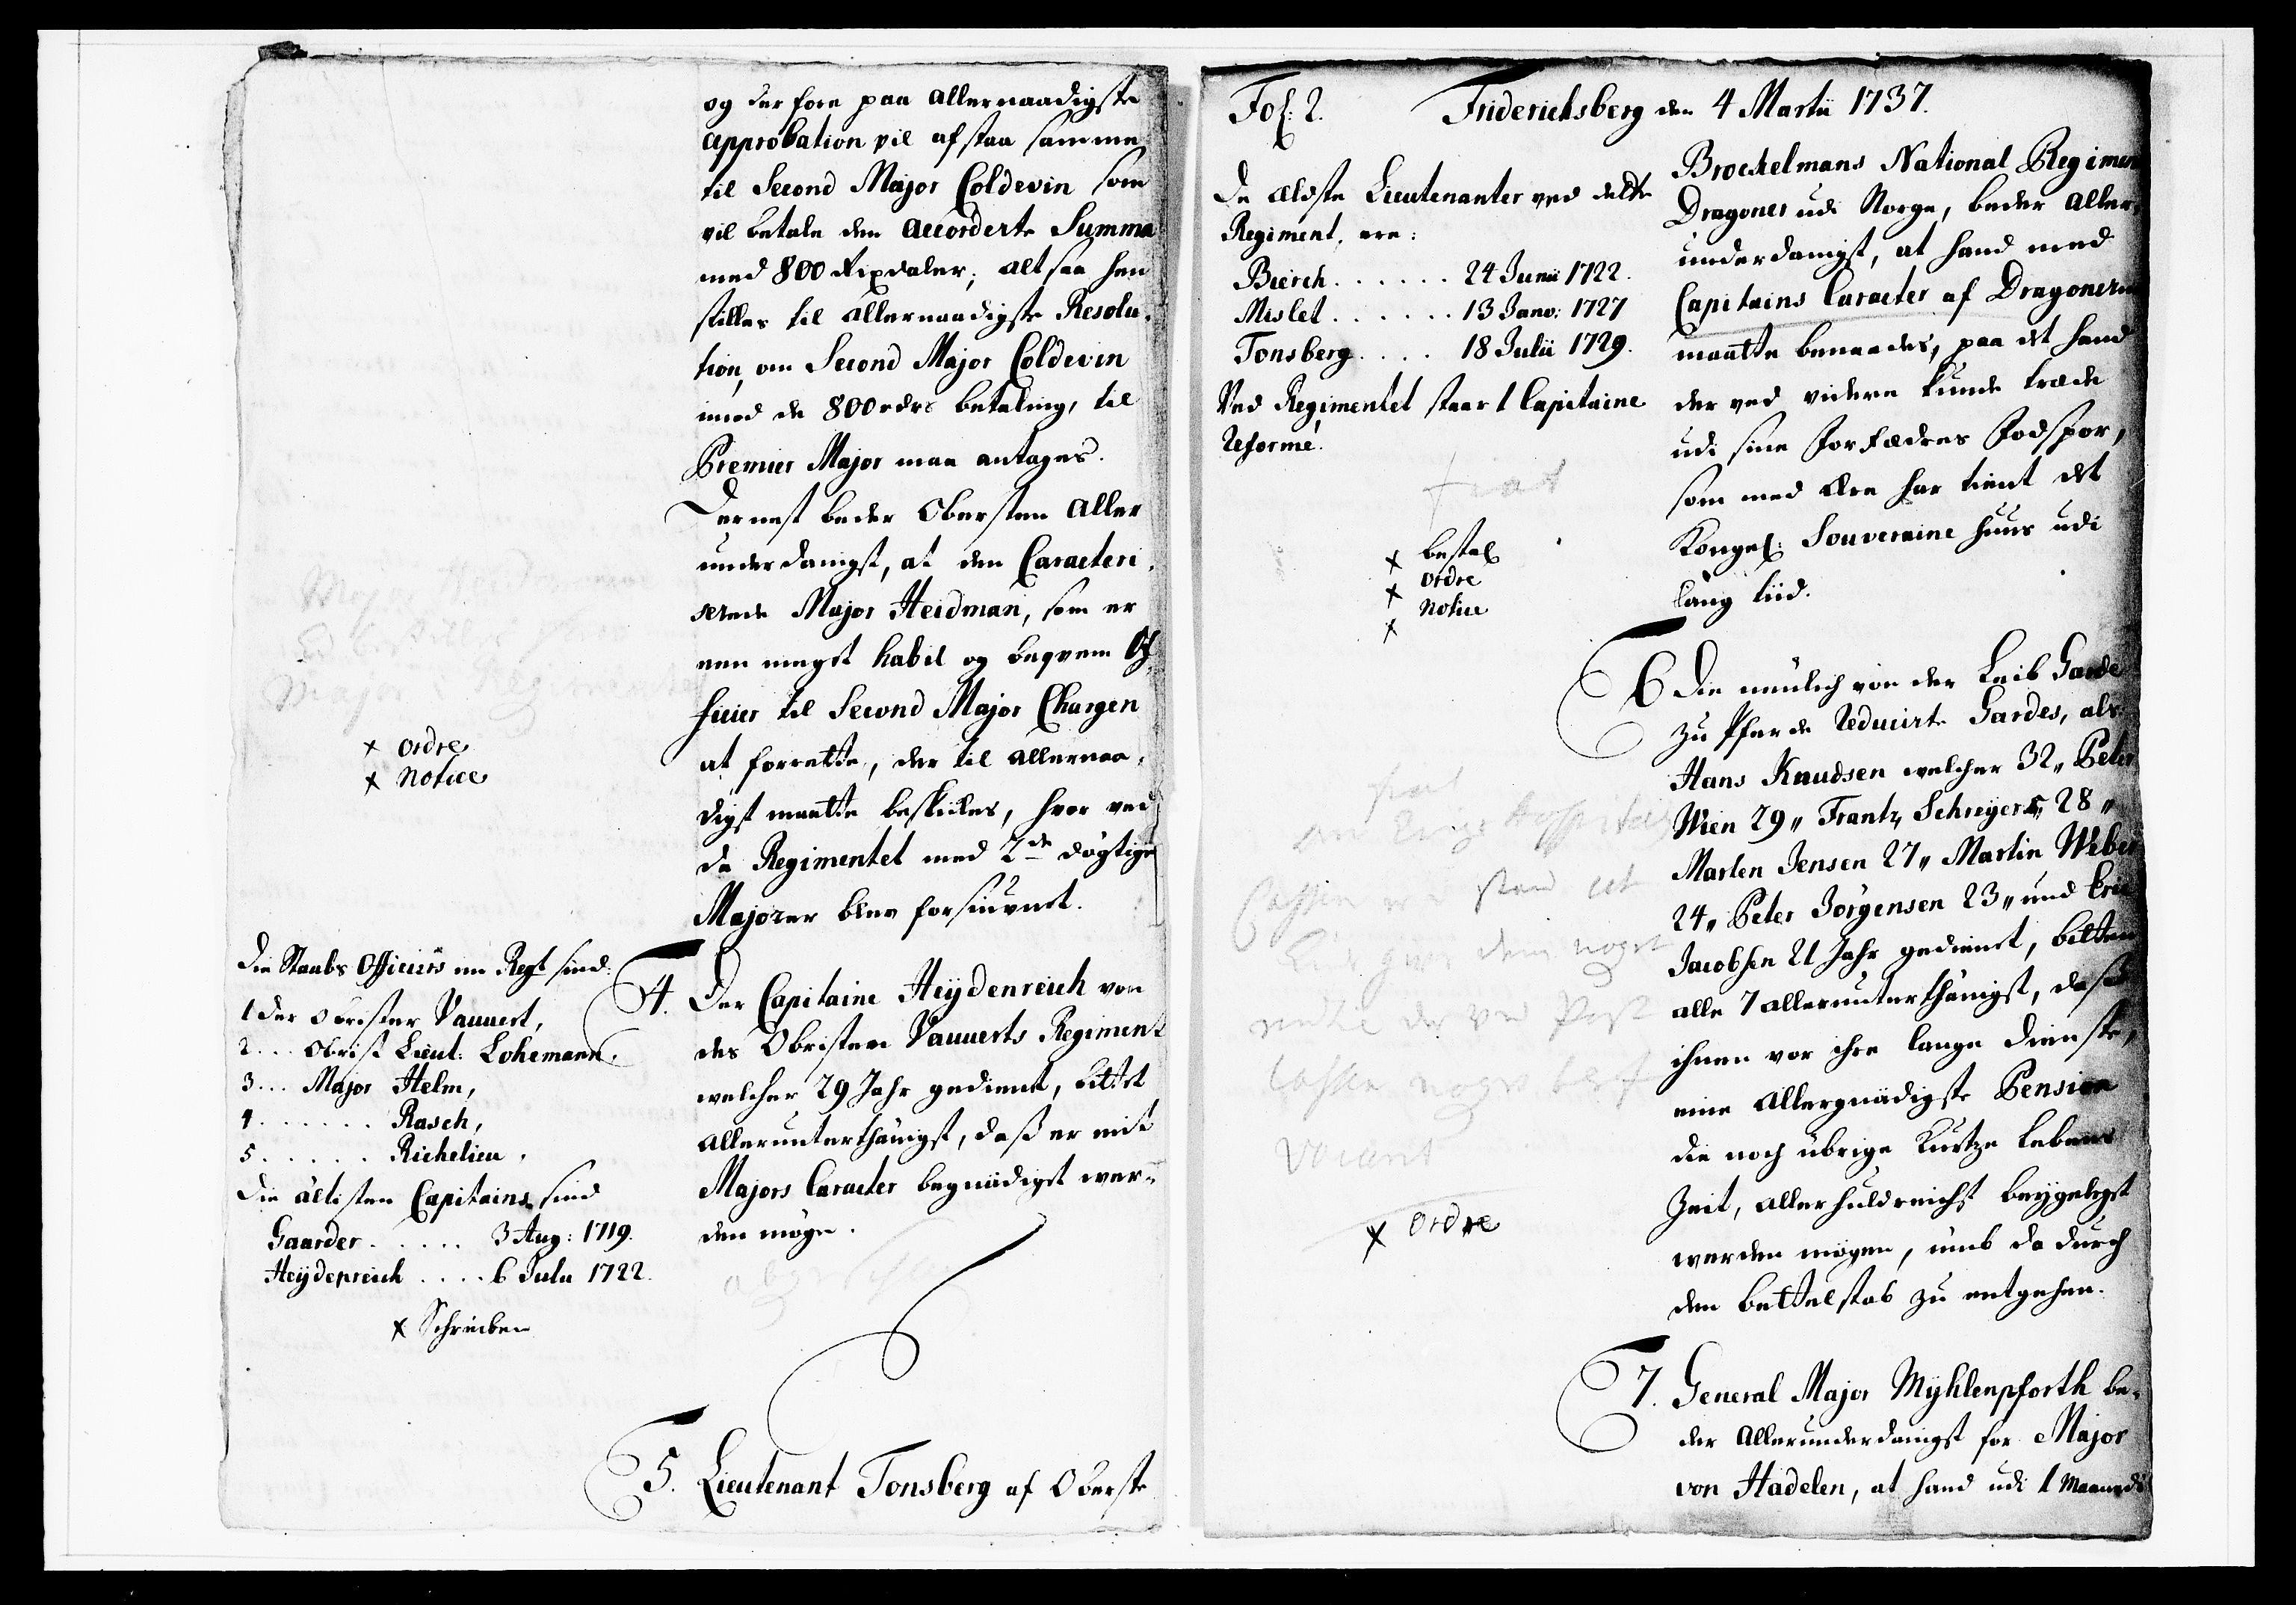 og der fore paa allernaadigste
approbation vil afstaa samme
til Second Major Coldevin som
vil betale den accorderte Summa
med 800 Rixdaler; alt saa hen
stilles til allernaadigste Resolu-
tion, om Second Major Coldevin
imod de 800 rdrs betaling, til
Premier Major maa antages.
Dernest beder Obersten aller
underdanigst, at den Caracteri-
serede Major Heidman, som er
een megt habil og beqvem Of-
ficier til Second Major Chargen
at forrette, der til allernaa-
digst maatte beskikkes, hvor ved
da Regimentet med 2de dögtige
Majorer blev forsiunet.
Major
Major Regimente
x ordre
x Notice
Die Staabs Officiers im Regt sind:
1 der Obrister Vauvert,
2 ... Obrist Lieut: Lohemann,
3 ... Major Helm,
4 ...... Rasch,
5 ..... Richelieu.
Die ältisten Capitains sind
Gaarder ..... 3 Aug: 1719.
Heÿdenreich .... 6 Julii 1722.
x Schreiben
4. Der Capitaine Heÿdenreich von
des Obristen Vauverts Regiment
welcher 29 Jahr gedient, bittet
allerunterthänigst, daß er mit
Majors Caracter begnädiget wer-
den möge.
5. Lieutenant Tonsberg af Oberste
Fol: 2. Friderichsberg den 4 Martii 1737.
De ældste Lieutenanter ved dette
Regiment, ere:
Bierch ...... 24 Junii 1722.
Mislet ...... 13 Janv: 1727
Tonsberg .... 18 Julii 1729.
Ved Regimentet staar 1 Capitaine
Reformé.
fiat
x bestal
x ordre
x Notice
Brockelmans National Regiment
Dragoner udi Norge, beder aller-
underdanigst, at hand med
Capitains Caracter af Dragonerne
maatte benaades, paa det hand
der ved videre kunde træde
udi sine Forfædres Fodspor,
som med Ære har tient det
Kongel: Souveraine Huus udi
lang tiid.
6 Die neülich von der Leib Garde
zu Pferde Reducirte Gardes, als
Hans Knudsen welcher 32,, Peter
Wien 29,, Frantz Schreyer 28,,
Marten Jensen 27,, Martin Weber
24,, Peter Jörgensen 23,, und Eric
Jacobsen 21 Jahr gedienet, bitten
alle 7 allerunterthänigst, daß
ihnen vor ihre lange Dienste,
eine Allergnädigste Pension
die noch übrige Kurtze lebens
Zeit, allerhuldreichst beygeleget
werden mögen, umb da durch
den bettelstab zu entgehen.
fiat
Cassen
noget
Post
Cassen noget
vacant
x Ordre
7. General Major Mÿhlenpforth be-
der allerunderdanigst for Major
von Hadelen, at hand udi 1 Maaneds